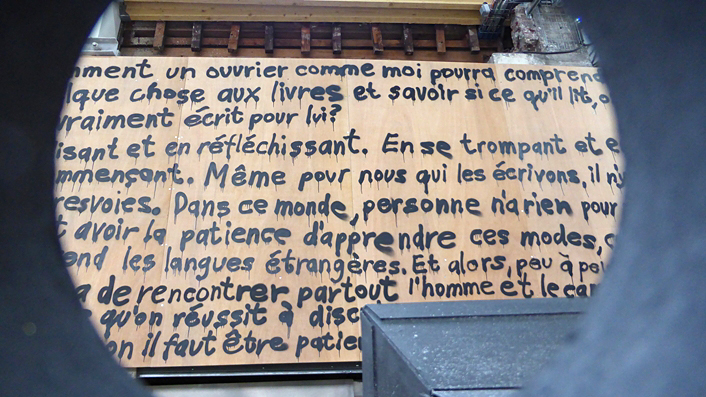 mment un ouvrier comme moi pourra comprend
lque chose aux livres et savoir si ce qu'il lit, o
vraiment écrit pour lui?
isant et en réfléchissant. En se trompant et e
mmençant. Même pour nous qui les écrivons, il n'y
resvoies. Dans ce monde, personne n'a rien pour
t avoir la patience d'apprendre ces modes, c
end les langues étrangères. Et alors, peu à peu
a de rencontrer partout l'homme et le car
e qu'on réussit à disc
on il faut être patien